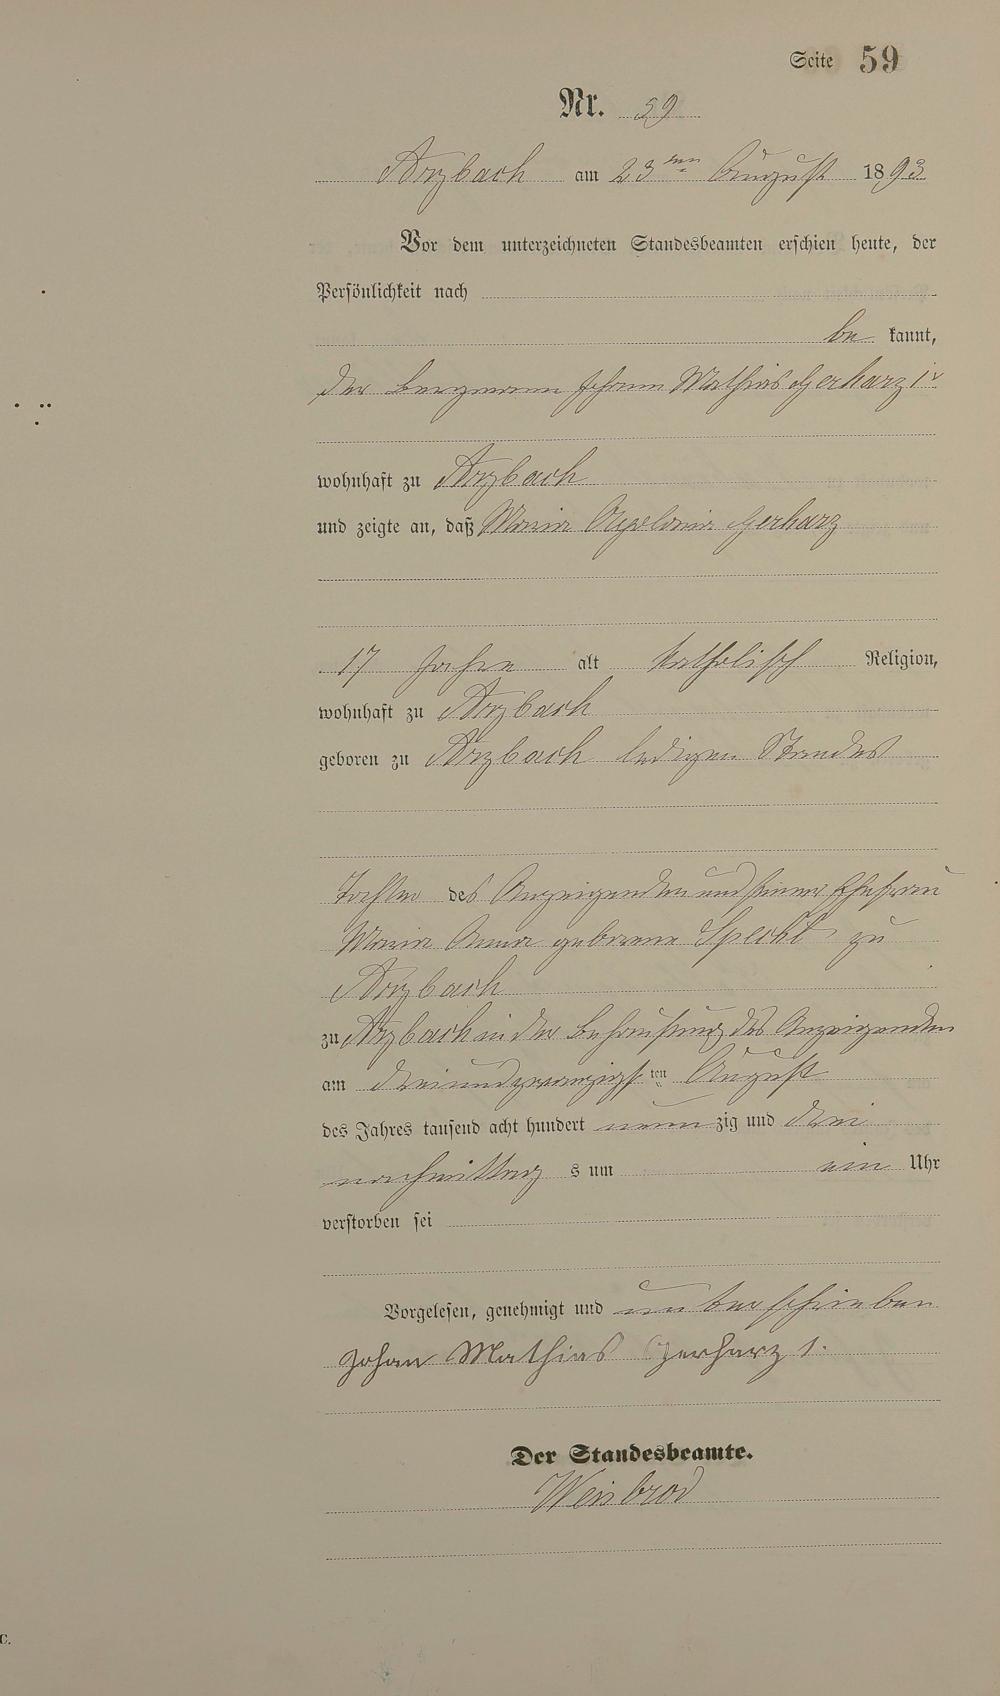 Seite 59
Nr. 59
Arzbach am 23ten August 1893
Vor dem unterzeichneten Standesbeamten erschien heute, der
Persönlichkeit nach
be kannt,
der Bergmann Johann Mathias Gerharz 1r
wohnhaft zu Arzbach
und zeigte an, daß Maria Appolonia Gerharz
17 Jahre alt katholisch Religion,
wohnhaft zu Arzbach
geboren zu Arzbach ledigen Standes
Tochter des Anzeigenden und seiner Ehefrau
Maria Anna geborene Specht zu
Arzbach
zu Arzbach in der Behausung des Anzeigenden
am dreiundzwanzigsten August
des Jahres tausend acht hundert neunzig und drei
nachmittags um ein Uhr
verstorben sei
Vorgelesen, genehmigt und unterschrieben
Johan Mathias Gerharz 1.
Der Standesbeamte.
Weisbrod
C.